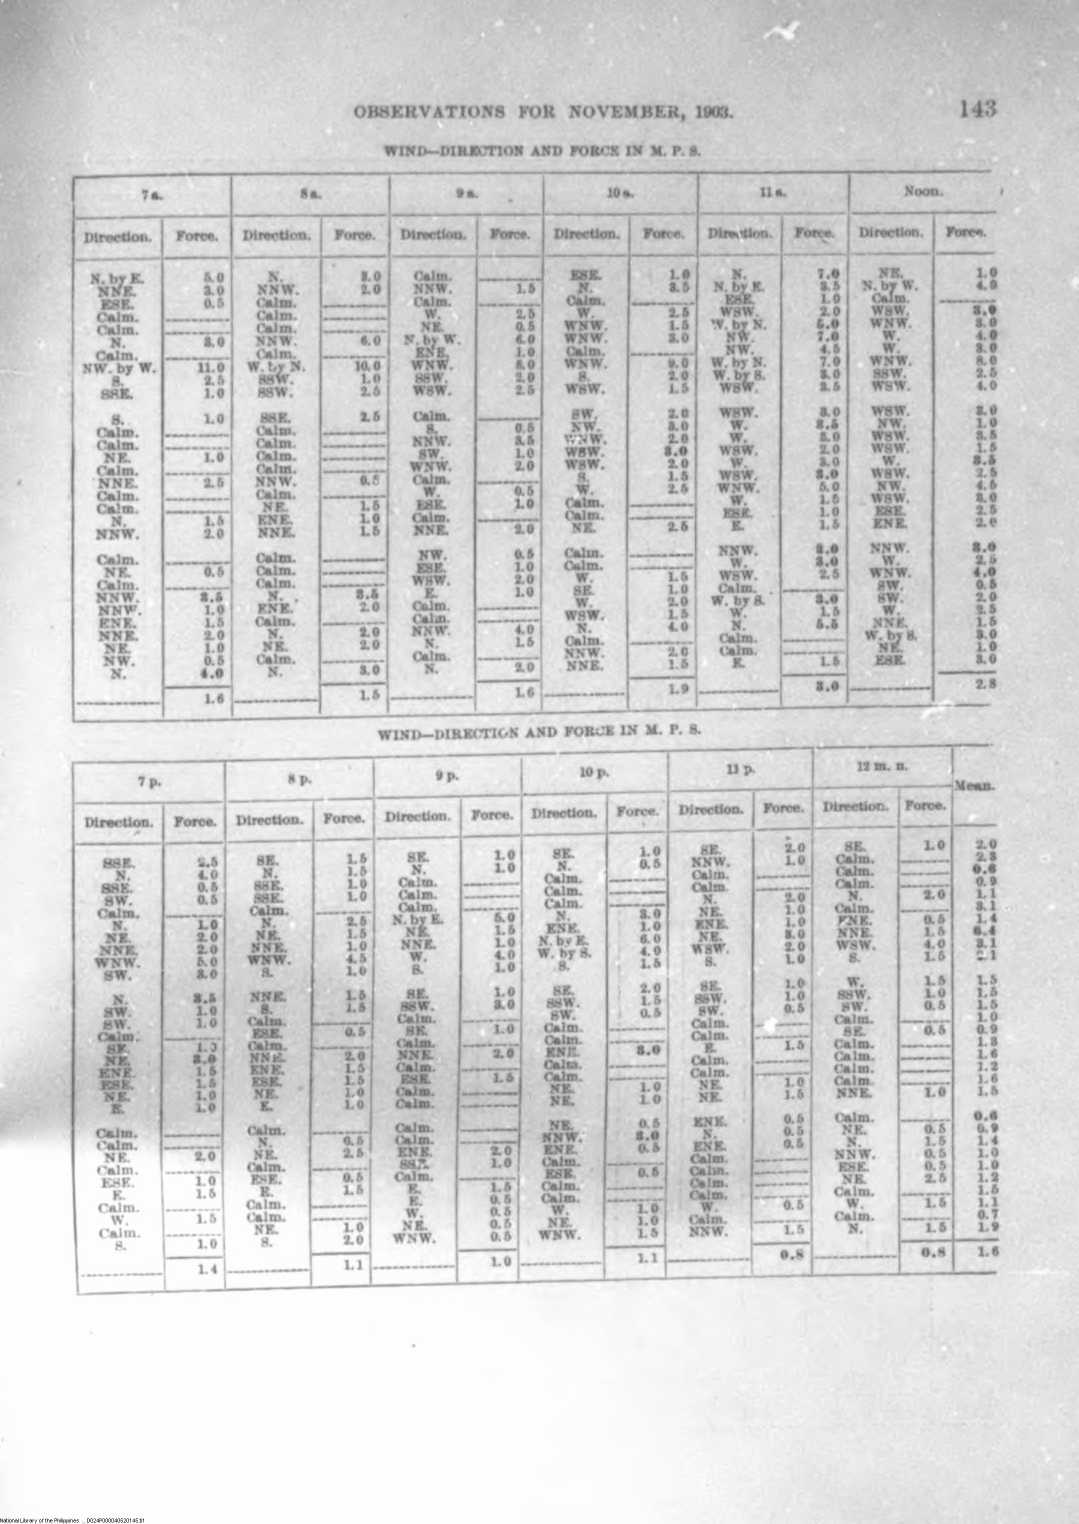 OBSERVATIONS FOR NOVEMBER, 1903. 143
WIND—DIRECTION AND FORCE IN M. P. S.
7 a. 8 a. 9 a. 10 a. 11 a. Noon.
Direction. Force. Direction. Force. Direction. Force. Direction. Force. Direction. Force. Direction. Force.
N. by E. 5.0 N. 3.0 Calm. ESE. 1.0 N. 7.0 NE. 1.0
NNE. 3.0 NNW. 2.0 NNW. 1.5 N. 3.5 N. by E. 3.5 N. by W. 4.0
ESE. 0.5 Calm. Calm. Calm. ESE. 1.0 Calm.
Calm. Calm. W. 2.5 W. 2.5 WSW. 2.0 WSW. 3.0
Calm. Calm. NE. 0.5 WNW. 1.5 W. by N. 5.0 WNW. 3.0
N. 3.0 NNW. 6.0 N. by W. 6.0 WNW. 3.0 NW. 7.0 W. 4.0
Calm. Calm. ENE. 1.0 Calm. NW. 4.5 W. 3.0
NW. by W. 11.0 W. by N. 10.0 WNW. 8.0 WNW. 9.0 W. by N. 7.0 WNW. 8.0
S. 2.5 SSW. 1.0 SSW. 2.0 S. 2.0 W. by S. 3.0 SSW. 2.5
SSE. 1.0 SSW. 2.5 WSW. 2.5 WSW. 1.5 WSW. 3.5 WSW. 4.0
S. 1.0 SSE. 2.5 Calm. SW. 2.0 WSW. 3.0 WSW. 3.0
Calm. Calm. S. 0.5 NW. 3.0 W. 3.5 NW. 1.0
Calm. Calm. NNW. 3.5 WNW. 2.0 W. 5.0 WSW. 3.5
NE. 1.0 Calm. SW. 1.0 WSW. 3.0 WSW. 2.0 WSW. 1.5
Calm. Calm. WNW. 2.0 WSW. 2.0 W. 3.0 W. 3.5
NNE. 2.5 NNW. 0.5 Calm. S. 1.5 WSW. 3.0 WSW. 2.5
Calm. Calm. W. 0.5 W. 2.5 WNW. 5.0 NW. 4.5
Calm. NE. 1.5 ESE. 1.0 Calm. W. 1.5 WSW. 3.0
N. 1.5 ENE. 1.0 Calm. Calm. ESE. 1.0 ESE. 2.5
NNW. 2.0 NNE. 1.5 NNE. 2.0 NE. 2.5 E. 1.5 ENE. 2.0
Calm. Calm. NW. 0.5 Calm. NNW. 3.0 NNW. 3.0
NE. 0.5 Calm. ESE. 1.0 Calm. W. 3.0 W. 2.5
Calm. Calm. WSW. 2.0 W. 1.5 WSW. 2.5 WNW. 4.0
NNW. 3.5 N. 3.5 E. 1.0 SE. 1.0 Calm. SW. 0.5
NNW. 1.0 ENE. 2.0 Calm. W. 2.0 W. by S. 3.0 SW. 2.0
ENE. 1.5 Calm. Calm. WSW. 1.5 W. 1.5 W. 2.5
NNE. 2.0 N. 2.0 NNW. 4.0 N. 4.0 N. 5.5 NNE. 1.5
NE. 1.0 NE. 2.0 N. 1.5 Calm. Calm. W. by S. 3.0
NW. 0.5 Calm. Calm. NNW. 2.0 Calm. NE. 1.0
N. 4.0 N. 3.0 N. 2.0 NNE. 1.5 E. 1.5 ESE. 3.0
1.6 1.5 1.6 1.9 3.0 2.8
WIND—DIRECTION AND FORCE IN M. P. S.
7 p. 8 p. 9 p. 10 p. 11 p. 12 m. n. Mean.
Direction. Force. Direction. Force. Direction. Force. Direction. Force. Direction. Force. Direction. Force.
SSE. 2.5 SE. 1.5 SE. 1.0 SE. 1.0 SE. 2.0 SE. 1.0 2.0
N. 4.0 N. 1.5 N. 1.0 N. 0.5 NNW. 1.0 Calm. 2.3
SSE. 0.5 SSE. 1.0 Calm. Calm. Calm. Calm. 0.6
SW. 0.5 SSE. 1.0 Calm. Calm. Calm. Calm. 0.9
Calm. Calm. Calm. Calm. N. 2.0 N. 2.0 1.1
N. 1.0 N. 2.5 N. by E. 5.0 N. 3.0 NE. 1.0 Calm. 3.1
NE. 2.0 NE. 1.5 NE. 1.5 ENE. 1.0 ENE. 1.0 ENE. 0.5 1.4
NNE. 2.0 NNE. 1.0 NNE. 1.0 N. by E. 6.0 NE. 3.0 NNE. 1.5 6.4
WNW. 5.0 WNW. 4.5 W. 4.0 W. by S. 4.0 WSW. 2.0 WSW. 4.0 3.1
SW. 3.0 S. 1.0 S. 1.0 S. 1.5 S. 1.0 S. 1.5 2.1
N. 3.5 NNE. 1.5 SE. 1.0 SE. 2.0 SE. 1.0 W. 1.5 1.5
SW. 1.0 S. 1.5 SSW. 3.0 SSW. 1.5 SSW. 1.0 SSW. 1.0 1.5
SW. 1.0 Calm. Calm. SW. 0.5 SW. 0.5 SW. 0.5 1.5
Calm. ESE. 0.5 SE. 1.0 Calm. Calm. Calm. 1.0
SE. Calm. Calm. Calm. Calm. SE. 0.5 0.9
NE. 3.0 NNE. 2.0 NNE. 2.0 ENE. 3.0 E. 1.5 Calm. 1.8
ENE. 1.5 ENE. 1.5 Calm. Calm. Calm. Calm. 1.6
ESE. 1.5 ESE. 1.5 ESE. 1.5 Calm. Calm. Calm. 1.2
NE. 1.0 NE. 1.0 Calm. NE. 1.0 NE. 1.0 Calm. 1.6
E. 1.0 E. 1.0 Calm. NE. 1.0 NE. 1.5 NNE. 1.0 1.5
Calm. Calm. Calm. NE. 0.5 ENE. 0.5 Calm. 0.6
Calm. N. 0.5 Calm. NNW. 3.0 N. 0.5 NE. 0.5 0.9
NE. 2.0 NE. 2.5 ENE. 2.0 ENE. 0.5 ENE. 0.5 N. 1.5 1.4
Calm. Calm. 1.0 Calm. Calm. NNW. 0.5 1.0
ESE. 1.0 ESE. 0.5 Calm. ESE. 0.5 Calm. ESE. 0.5 1.0
E. 1.5 E. 1.5 E. 1.5 Calm. Calm. NE. 2.5 1.2
Calm. Calm. E. 0.5 Calm. Calm. Calm. 1.5
W. 1.5 Calm. W. 0.5 W. 1.0 W. 0.5 W. 1.5 1.1
Calm. NE. 1.0 NE. 0.5 NE. 1.0 Calm. Calm. 0.7
S. 1.0 S. 2.0 WNW. 0.5 WNW. 1.5 NNW. 1.5 N. 1.5 1.9
1.4 1.1 1.0 1.1 0.8 0.8 1.6
National Library of the Philippines